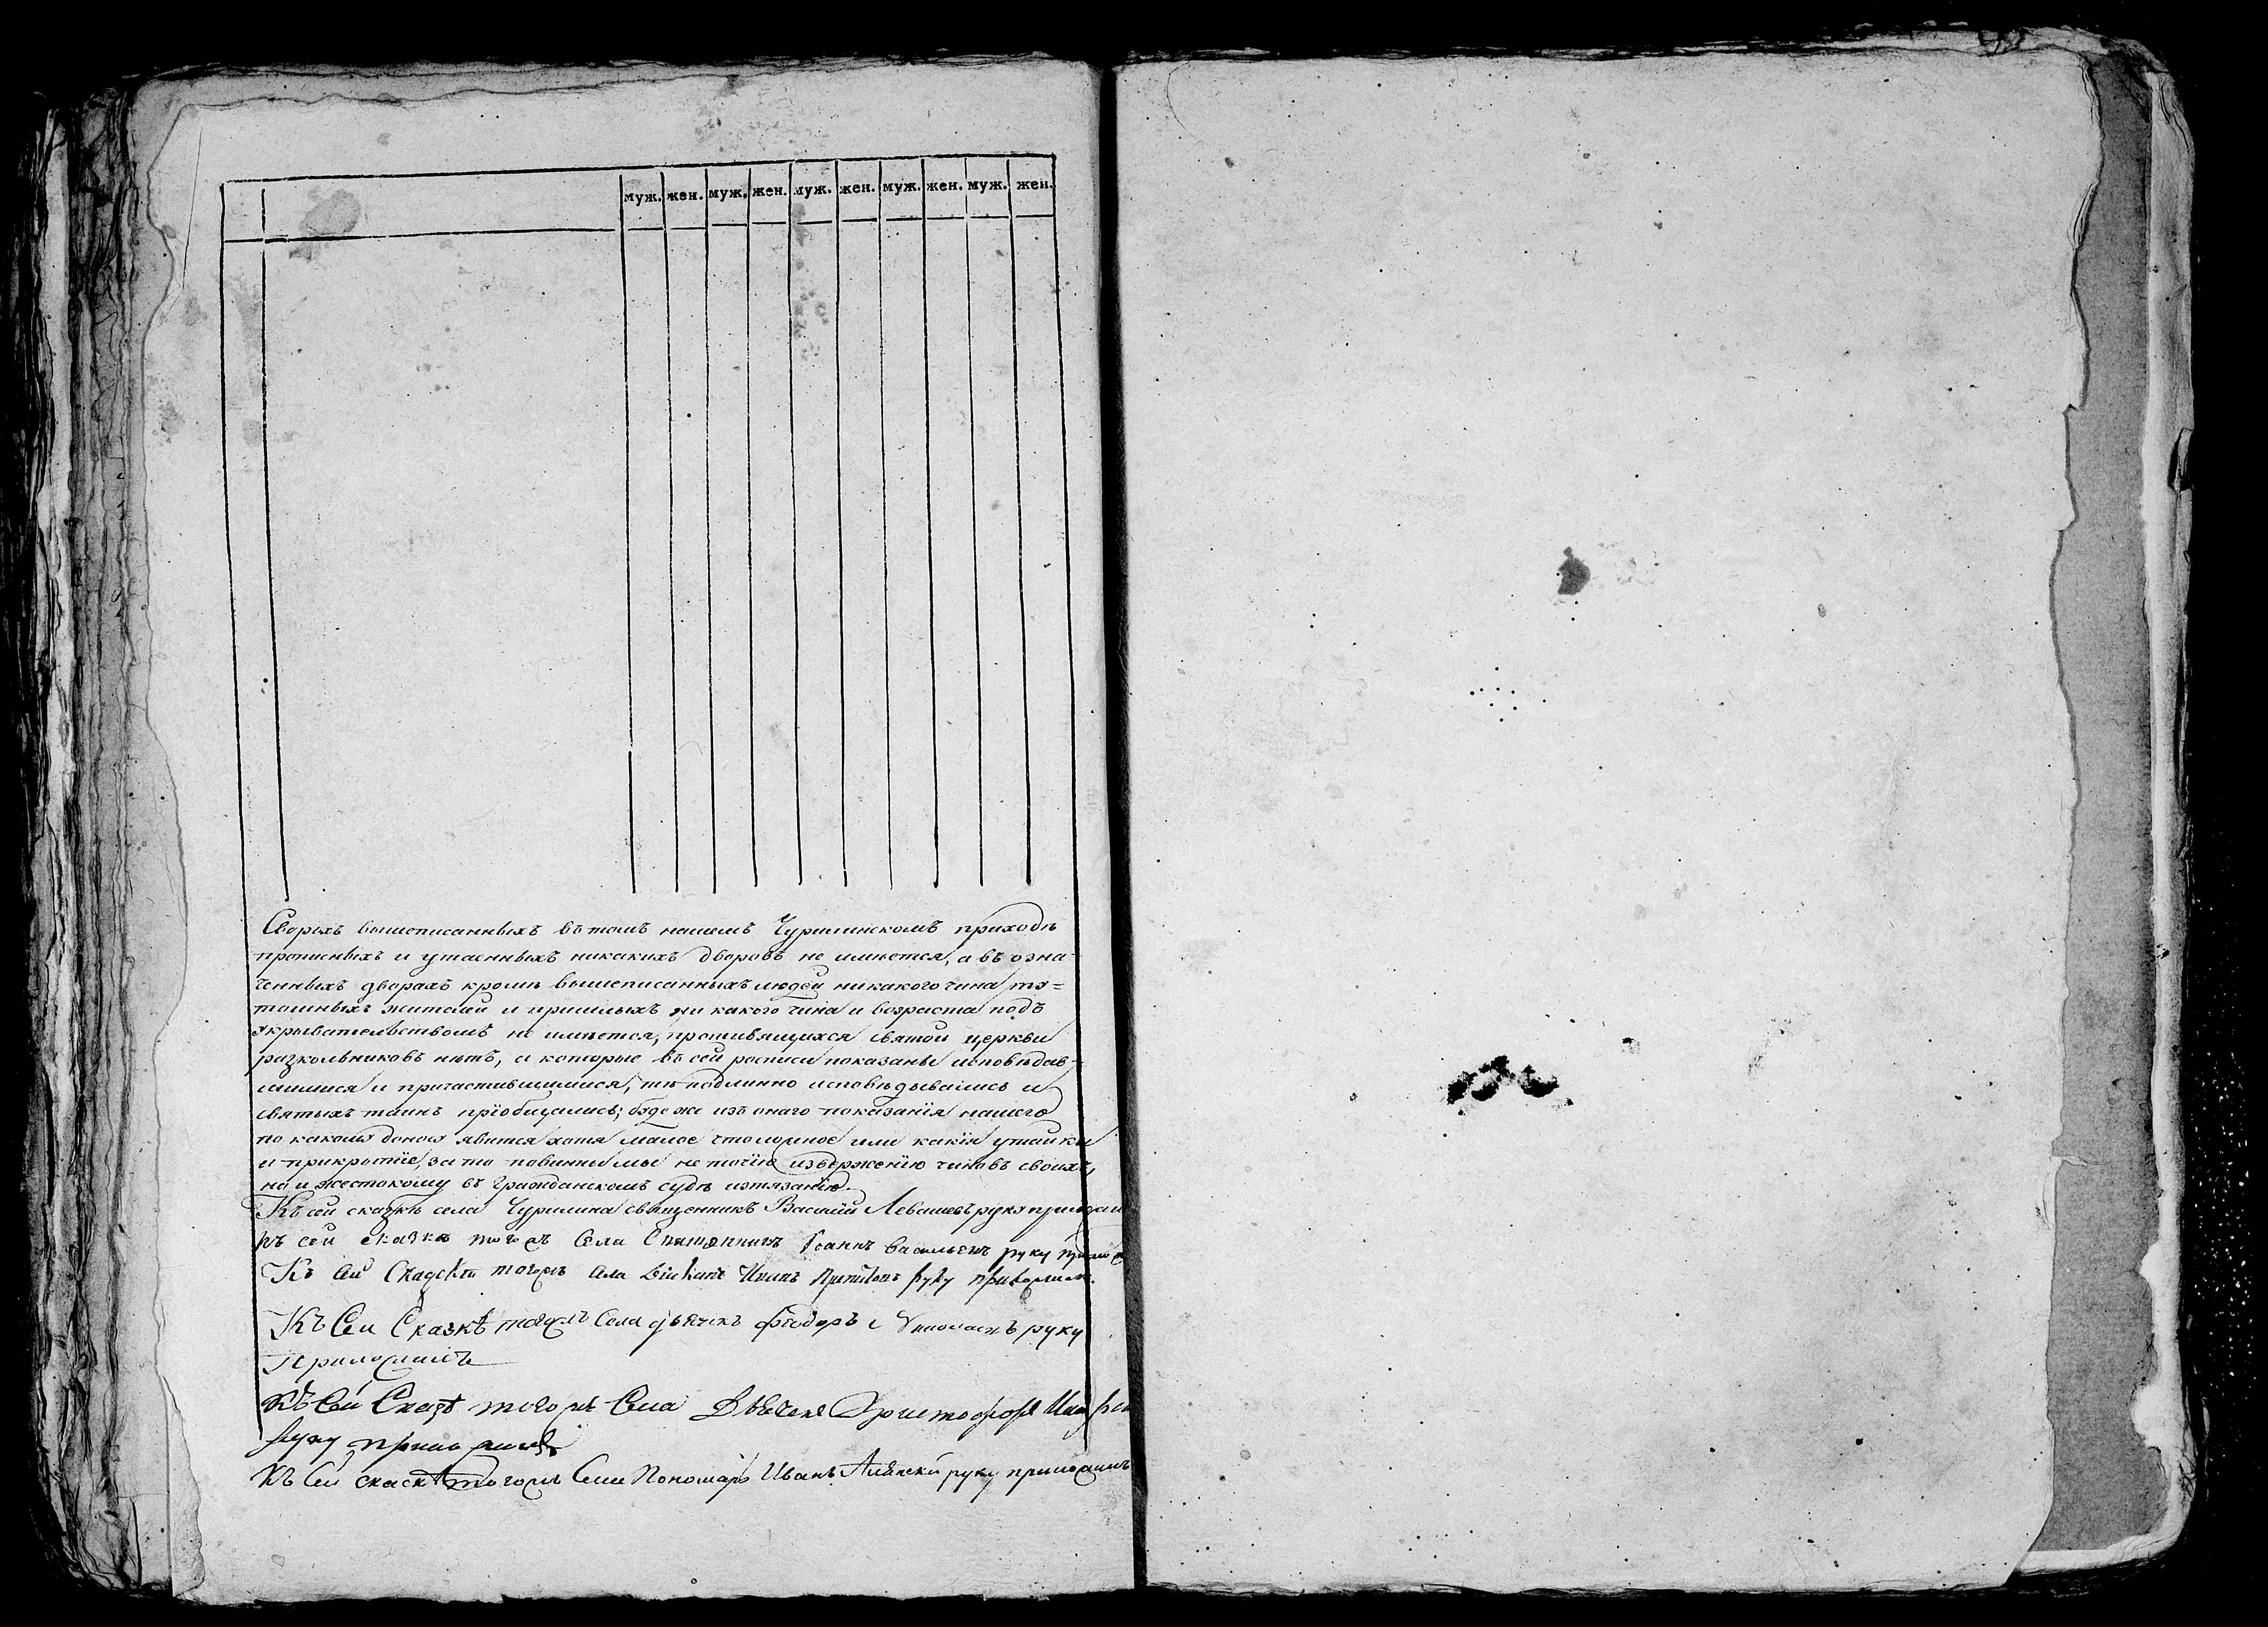 муж. жен. муж. жен. муж. жен. муж. жен. муж. жен.
Сверхъ вышеписанныхъ въ томъ нашемъ Чурилинскомъ приходѣ
прописныхъ и утаенныхъ никакихъ дворовъ не имѣется, а въ озна-
ченныхъ дворахъ кромѣ вышеписанныхъ людей никакого чина
жителей и пришлыхъ ни какого чина и возраста подъ
укрывательствомъ не имѣется, противящихся святой церкви
разкольниковъ нѣтъ, а которые въ сей росписи показаны исповѣдав-
шимися и причастившимися, тѣ подлинно исповѣдывались и
святыхъ таинъ пріобщались; буде же изъ онаго показанія нашего
по какому доносу явится хотя малое что ложное или какія утайки
и прикрытіе, за то повинны мы не точію изверженію чиновъ своихъ,
но и жестокому въ гражданскомъ судѣ изтязанію.
Къ сей сказкѣ села Чурилина священникъ Василій Левашевъ руку
къ сей сказкѣ тогожъ Села Священникъ Іоаннъ Васильевъ руку
Къ сей тогожъ Села Діаконъ Иванъ руку приложилъ.
Къ Сеи Сказкѣ тогожъ Села дьячекъ Ѳедоръ руку
Приложилъ
Къ Сей тогожъ Села Христофоръ
руку приложилъ
Къ Сей скаскѣ тогожъ Села Пономарь Иванъ руку приложилъ